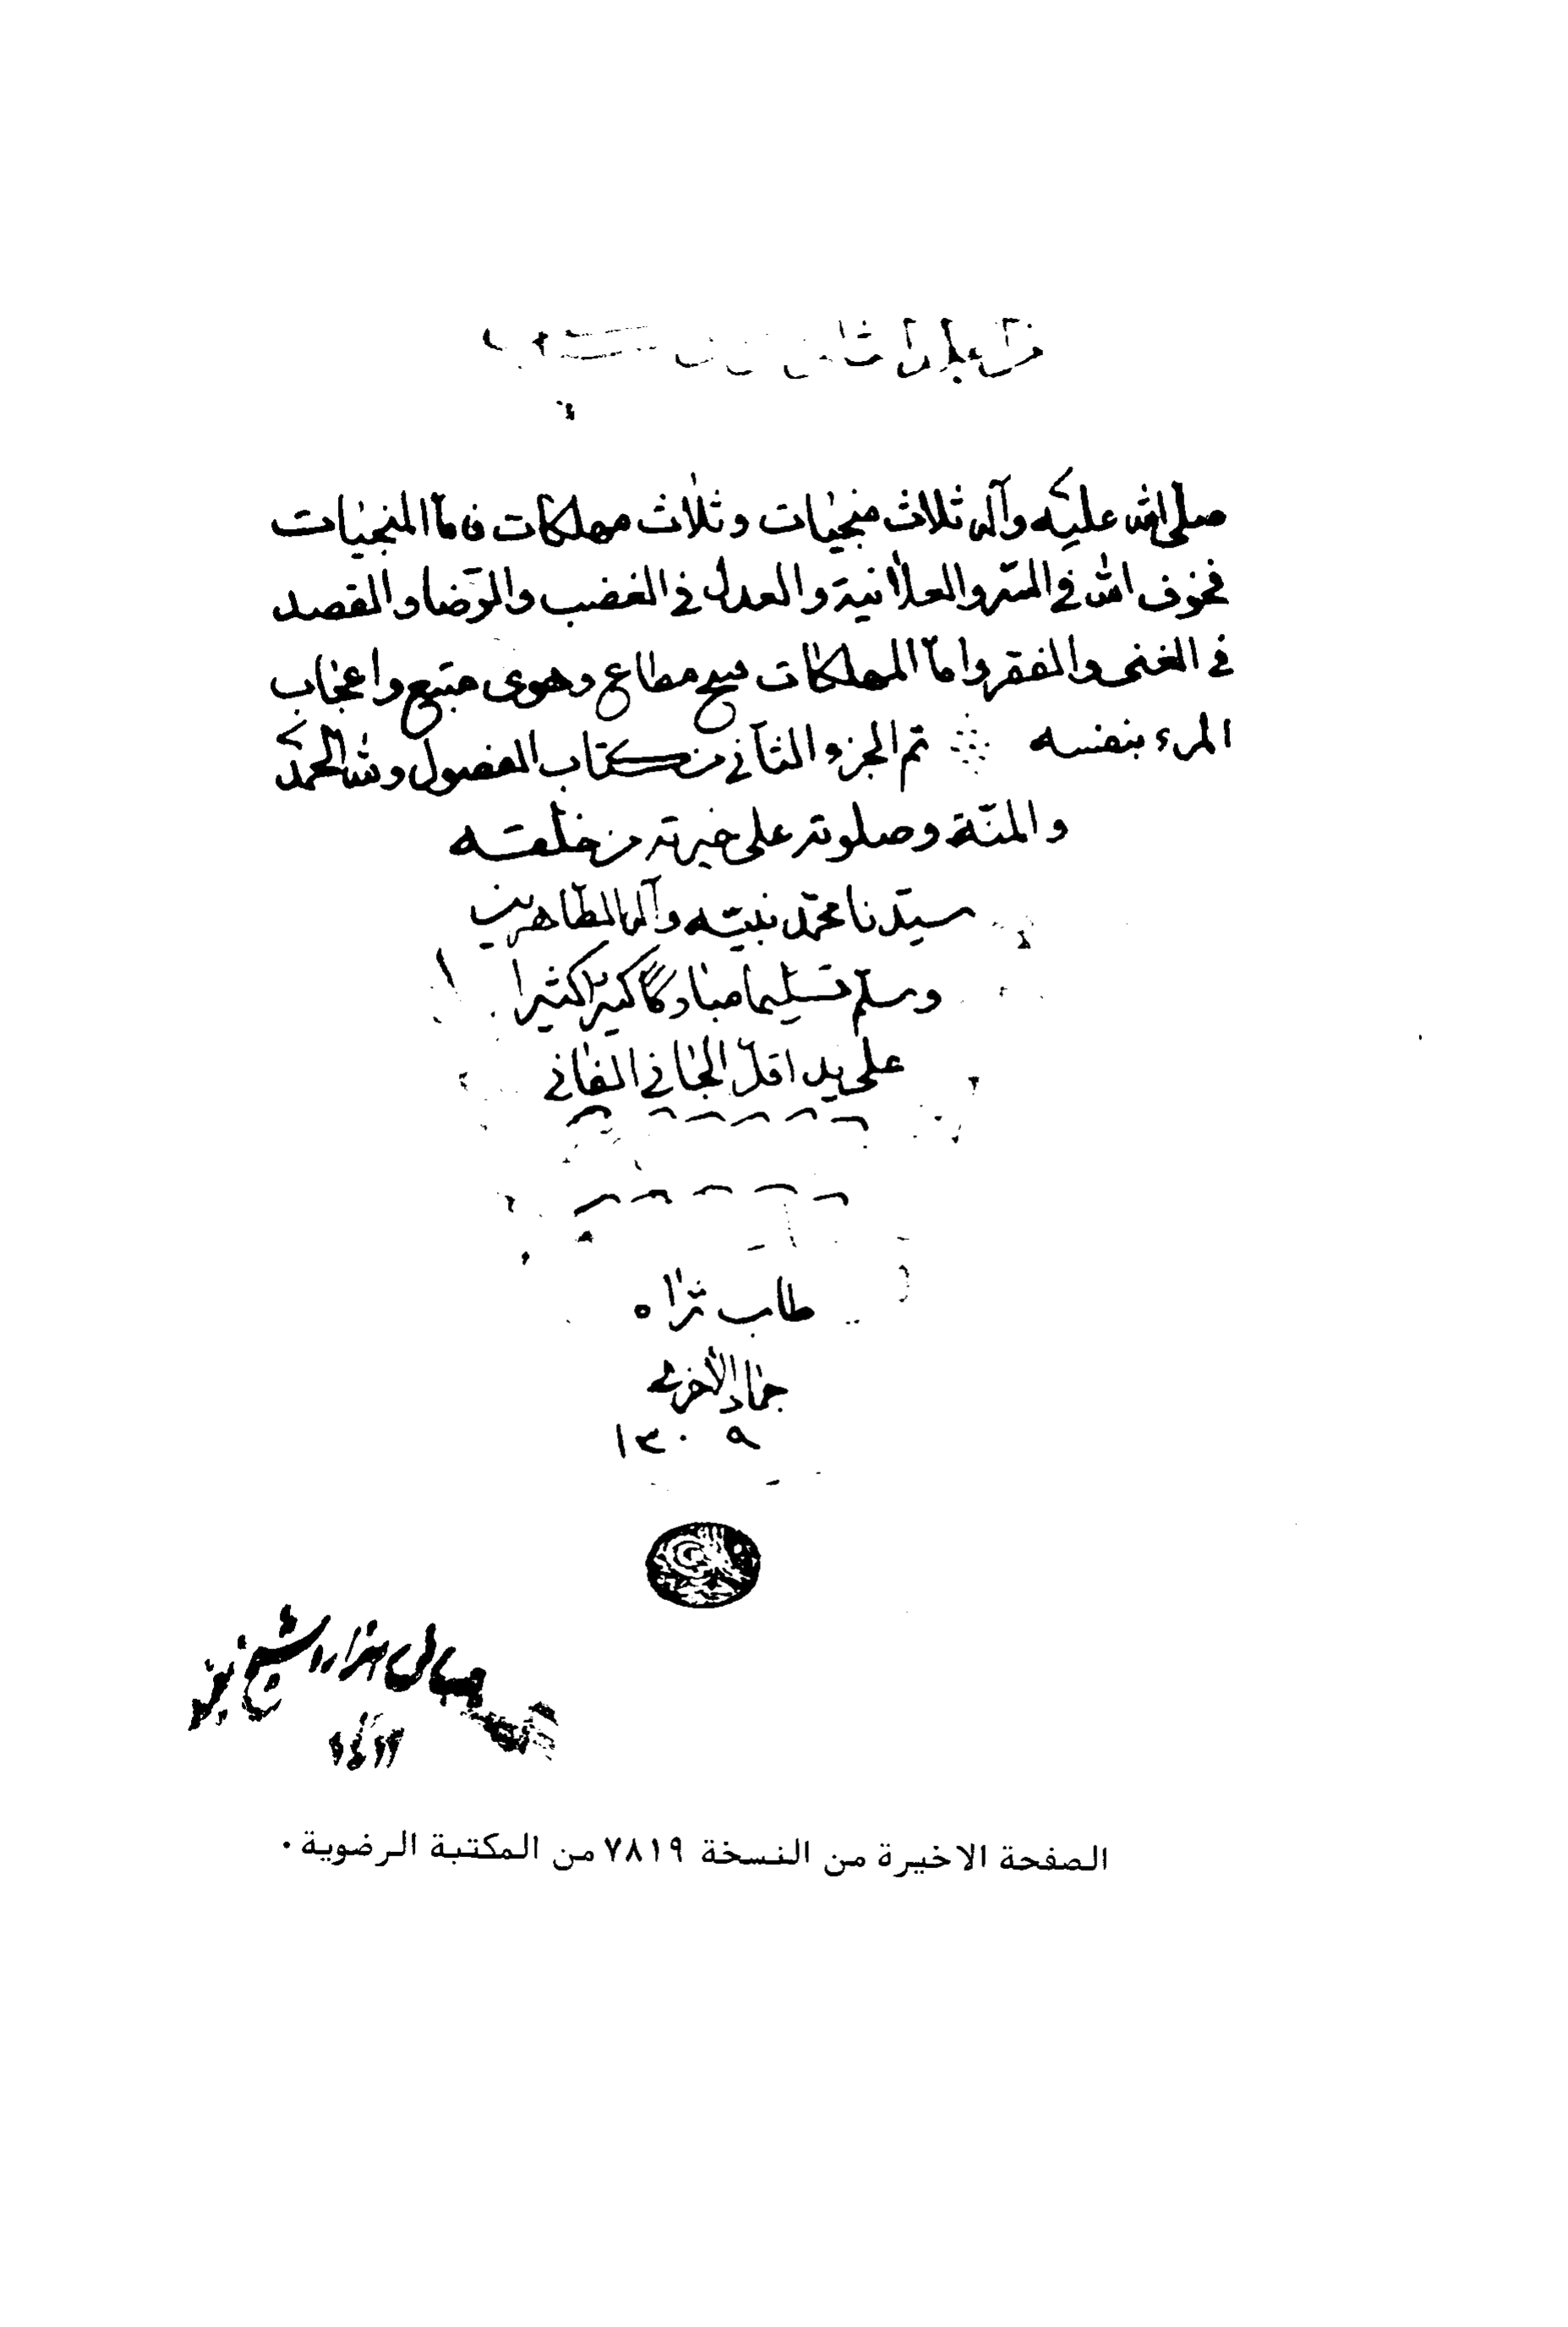 صلى الله عليه وآله ثلاث منجيات وثلاث مهلكات فاما المنجيات
فخوف الله في السّر والعلانية والعدل في الغضب والرّضا والقصد
في الغنى والفقر واما المهلكات فشح مطاع وهوى متبع واعجاب
المرء بنفسه تم الجزو الثاني من كتاب الفصول ولله الحمد
والمنّة وصلوته على خيرته من خلقه
سيّدنا محمّد نبيّه وآله الطاهرين
وسلم تسليما مباركا كثيرا
على يد اقلّ الجاني الفاني
طاب ثراه
جماد الاخرى
١٣٠٩
الصفحة الاخيرة من النسخة ٧٨١٩ من المكتبة الرضوية .